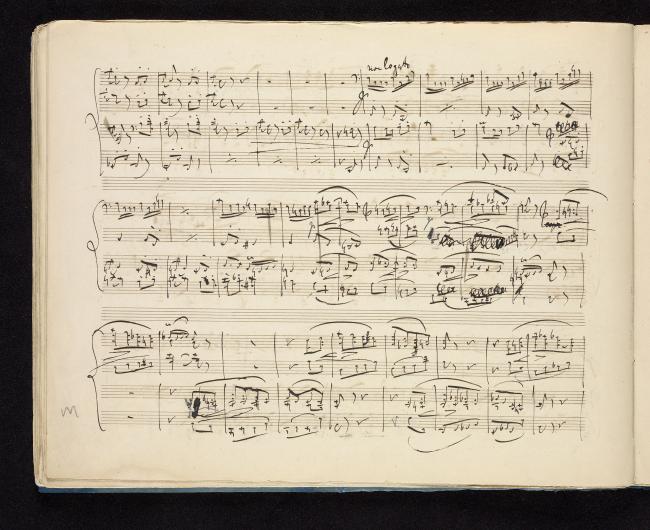 non legato
m